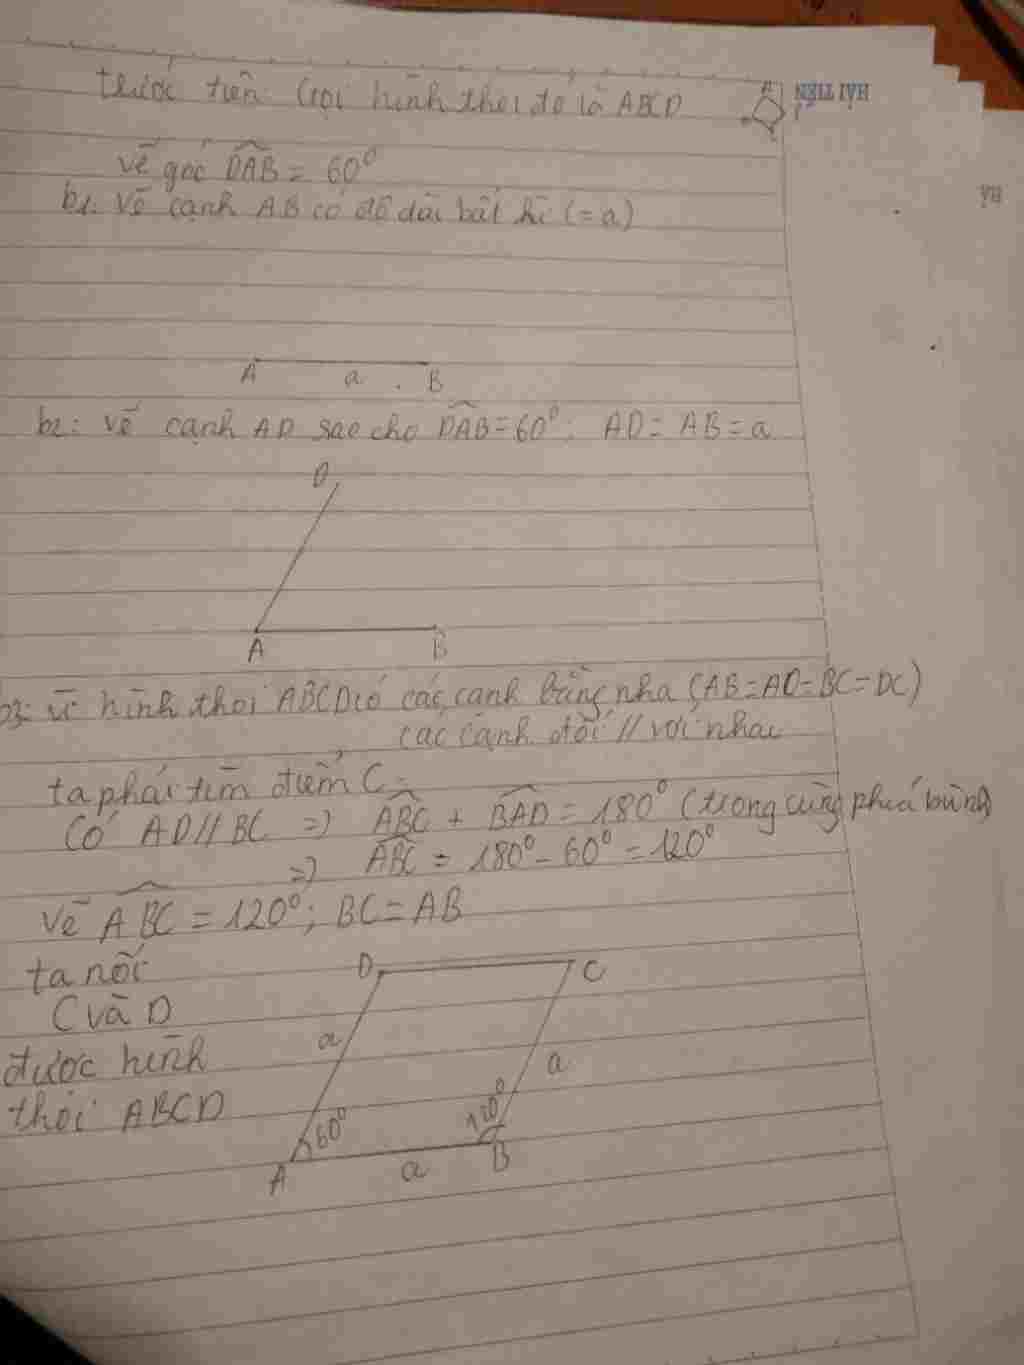 trước tiên Gọi hình thoi đó là ABCD
HẢI TIẾN
vẽ góc DAB = 60°
HẢ
b1: Vẽ cạnh AB có độ dài bất kì (= a)
A a B
b2: vẽ cạnh AD sao cho DAB = 60°; AD = AB = a
D
A B
b3: vì hình thoi ABCD có các cạnh bằng nha (AB=AD=BC=DC)
các cạnh đối // với nhau
ta phải tìm điểm C
Có AD // BC => ABC + BAD = 180° (trong cùng phía bù nh)
=> ABC = 180° - 60° = 120°
Vẽ ABC = 120°; BC = AB
ta nối
C và D
được hình
thoi ABCD
D C
a a
60° 120°
A a B